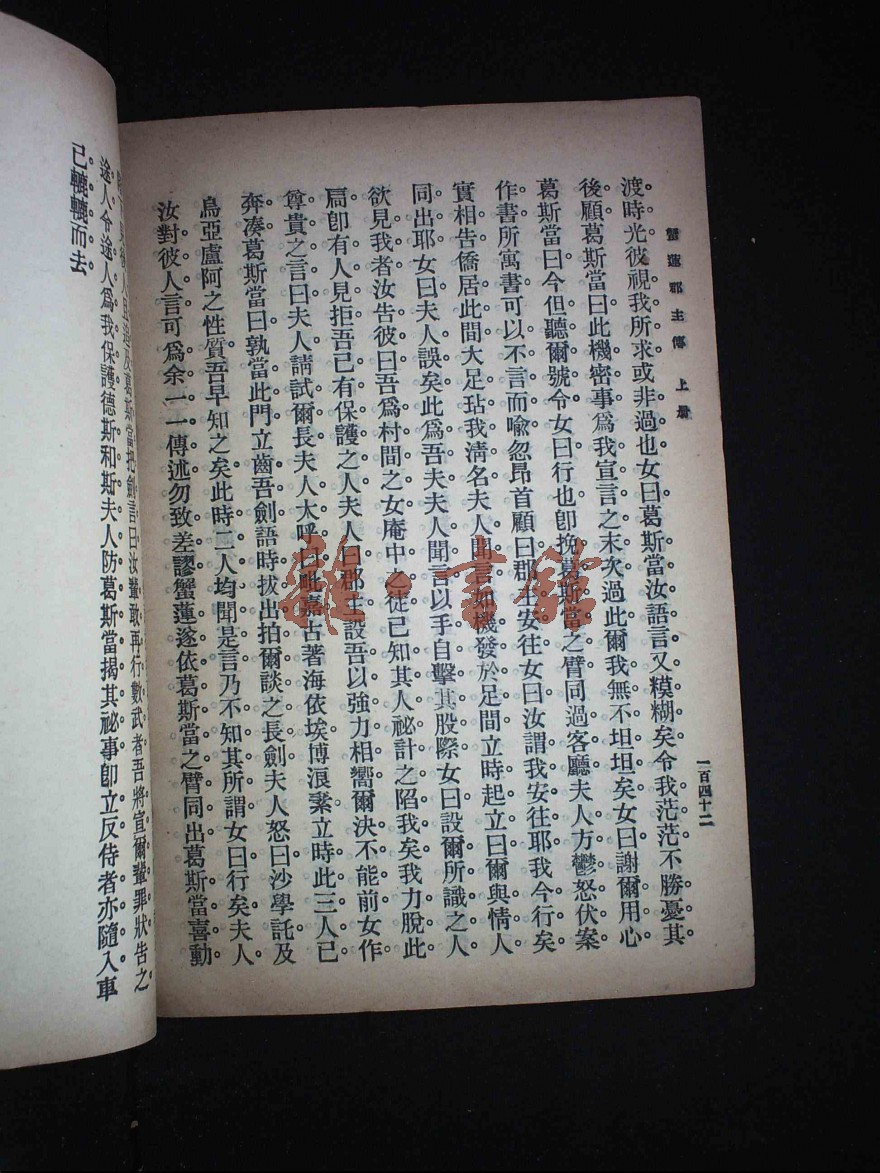 蟹蓮郡主傳 上册
一百四十二
渡時光。彼視我所求或非過也。女曰。葛斯當。汝語言又糢糊矣。令我茫茫不勝憂。其
後顧葛斯當曰。此機密事。爲我宣言之末次。過此爾我無不坦坦矣。女曰。謝爾用心。
葛斯當曰。今但聽爾號令。女曰。行也。卽挽葛斯當之臂。同過客廳。夫人方鬱怒伏案
作書。所寓書可以不言而喩。忽昂首顧曰。郡主安往。女曰。汝謂我安往耶。我今行矣。
實相告。僑居此間。大足玷我淸名。夫人聞言。如機發於足間。立時起立曰。爾與情人
同出耶。女曰。夫人誤矣。此爲吾夫。夫人聞言。以手自擊其股際。女曰。設爾所識之人
欲見我者。汝告彼曰。吾爲村間之女。庵中之徒。已知其人祕計之陷我矣。我力脫此
扃。卽有人見拒。吾已有保護之人。夫人曰。郡主設吾以強力相嚮。爾決不能前。女作
尊貴之言曰。夫人請試爾長。夫人大呼曰。吡嘉古著海依埃博湨素立時此三人已
奔湊。葛斯當曰。孰當此門。立齒吾劍。語時拔出拍爾談之長劍。夫人怒曰。沙學託及
烏亞盧阿之性質。吾早知之矣。此時二人均聞是言。乃不知其所謂。女曰。行矣。夫人
汝對彼人言。可爲余一一傳述。勿致差謬。蟹蓮遂依葛斯當之臂同出。葛斯當喜動
人且追及葛斯當把劍言曰。汝輩敢再行數武者。吾將宣爾輩罪狀。告之
途人。令途人爲我保護。德斯和斯夫人防葛斯當揭其祕事。卽立反。侍者亦隨入。車
已轆轆而去。